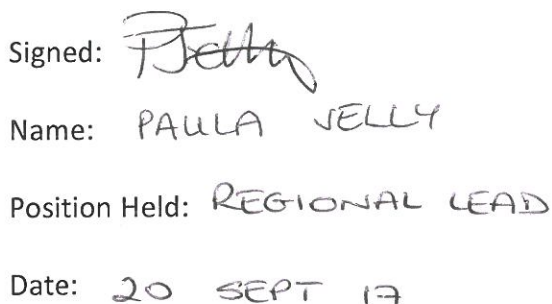 Signed: PJelly
Name: PAULA JELLY
Position Held: REGIONAL LEAD
Date: 20 SEPT 17